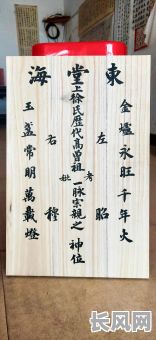 東堂海
金爐永旺千年火
左昭
上徐氏歷代高曾祖考妣一脉宗親之神位
右穆
玉盞常明萬載燈
长风网
cfw.cn